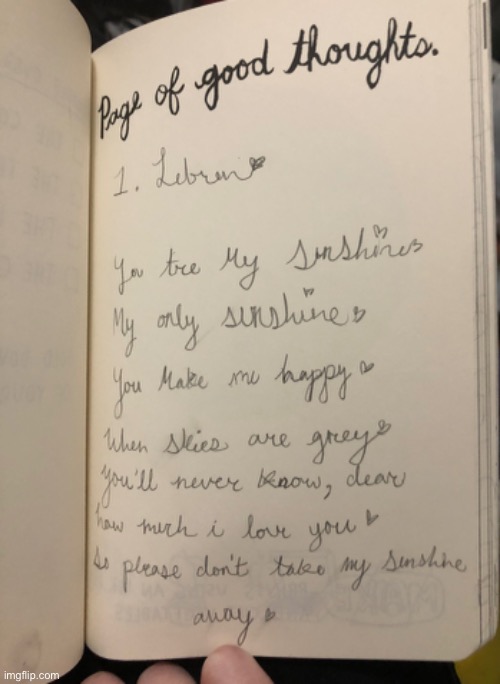 Page of good thoughts.
1. Lebron
You tre My Sunshine
My only sunshine
You Make me happy
When skies are grey
You'll never know, dear
how much i love you
so please don't take my sunshine
away
imgflip.com